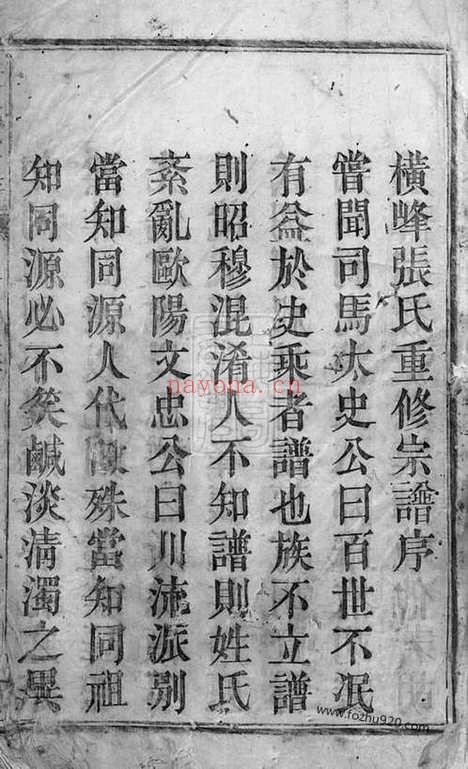 橫峰張氏重修宗譜序
嘗聞司馬太史公曰百世不泯
有益於史乘者譜也族不立譜
則昭穆混淆人不知譜則姓氏
紊亂歐陽文忠公曰川流派別
當知同源人代殊當知同祖
知同源必不矣鹹淡清濁之異
nayona.cn
www.fozhu920.com